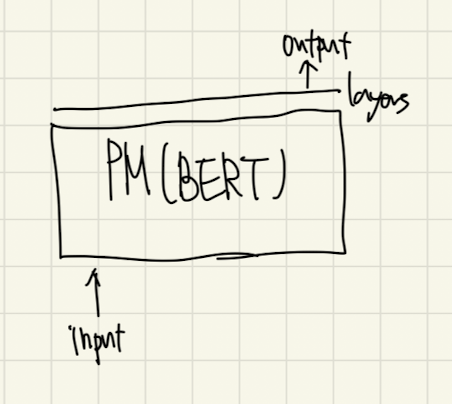 output
layers
PM (BERT)
input